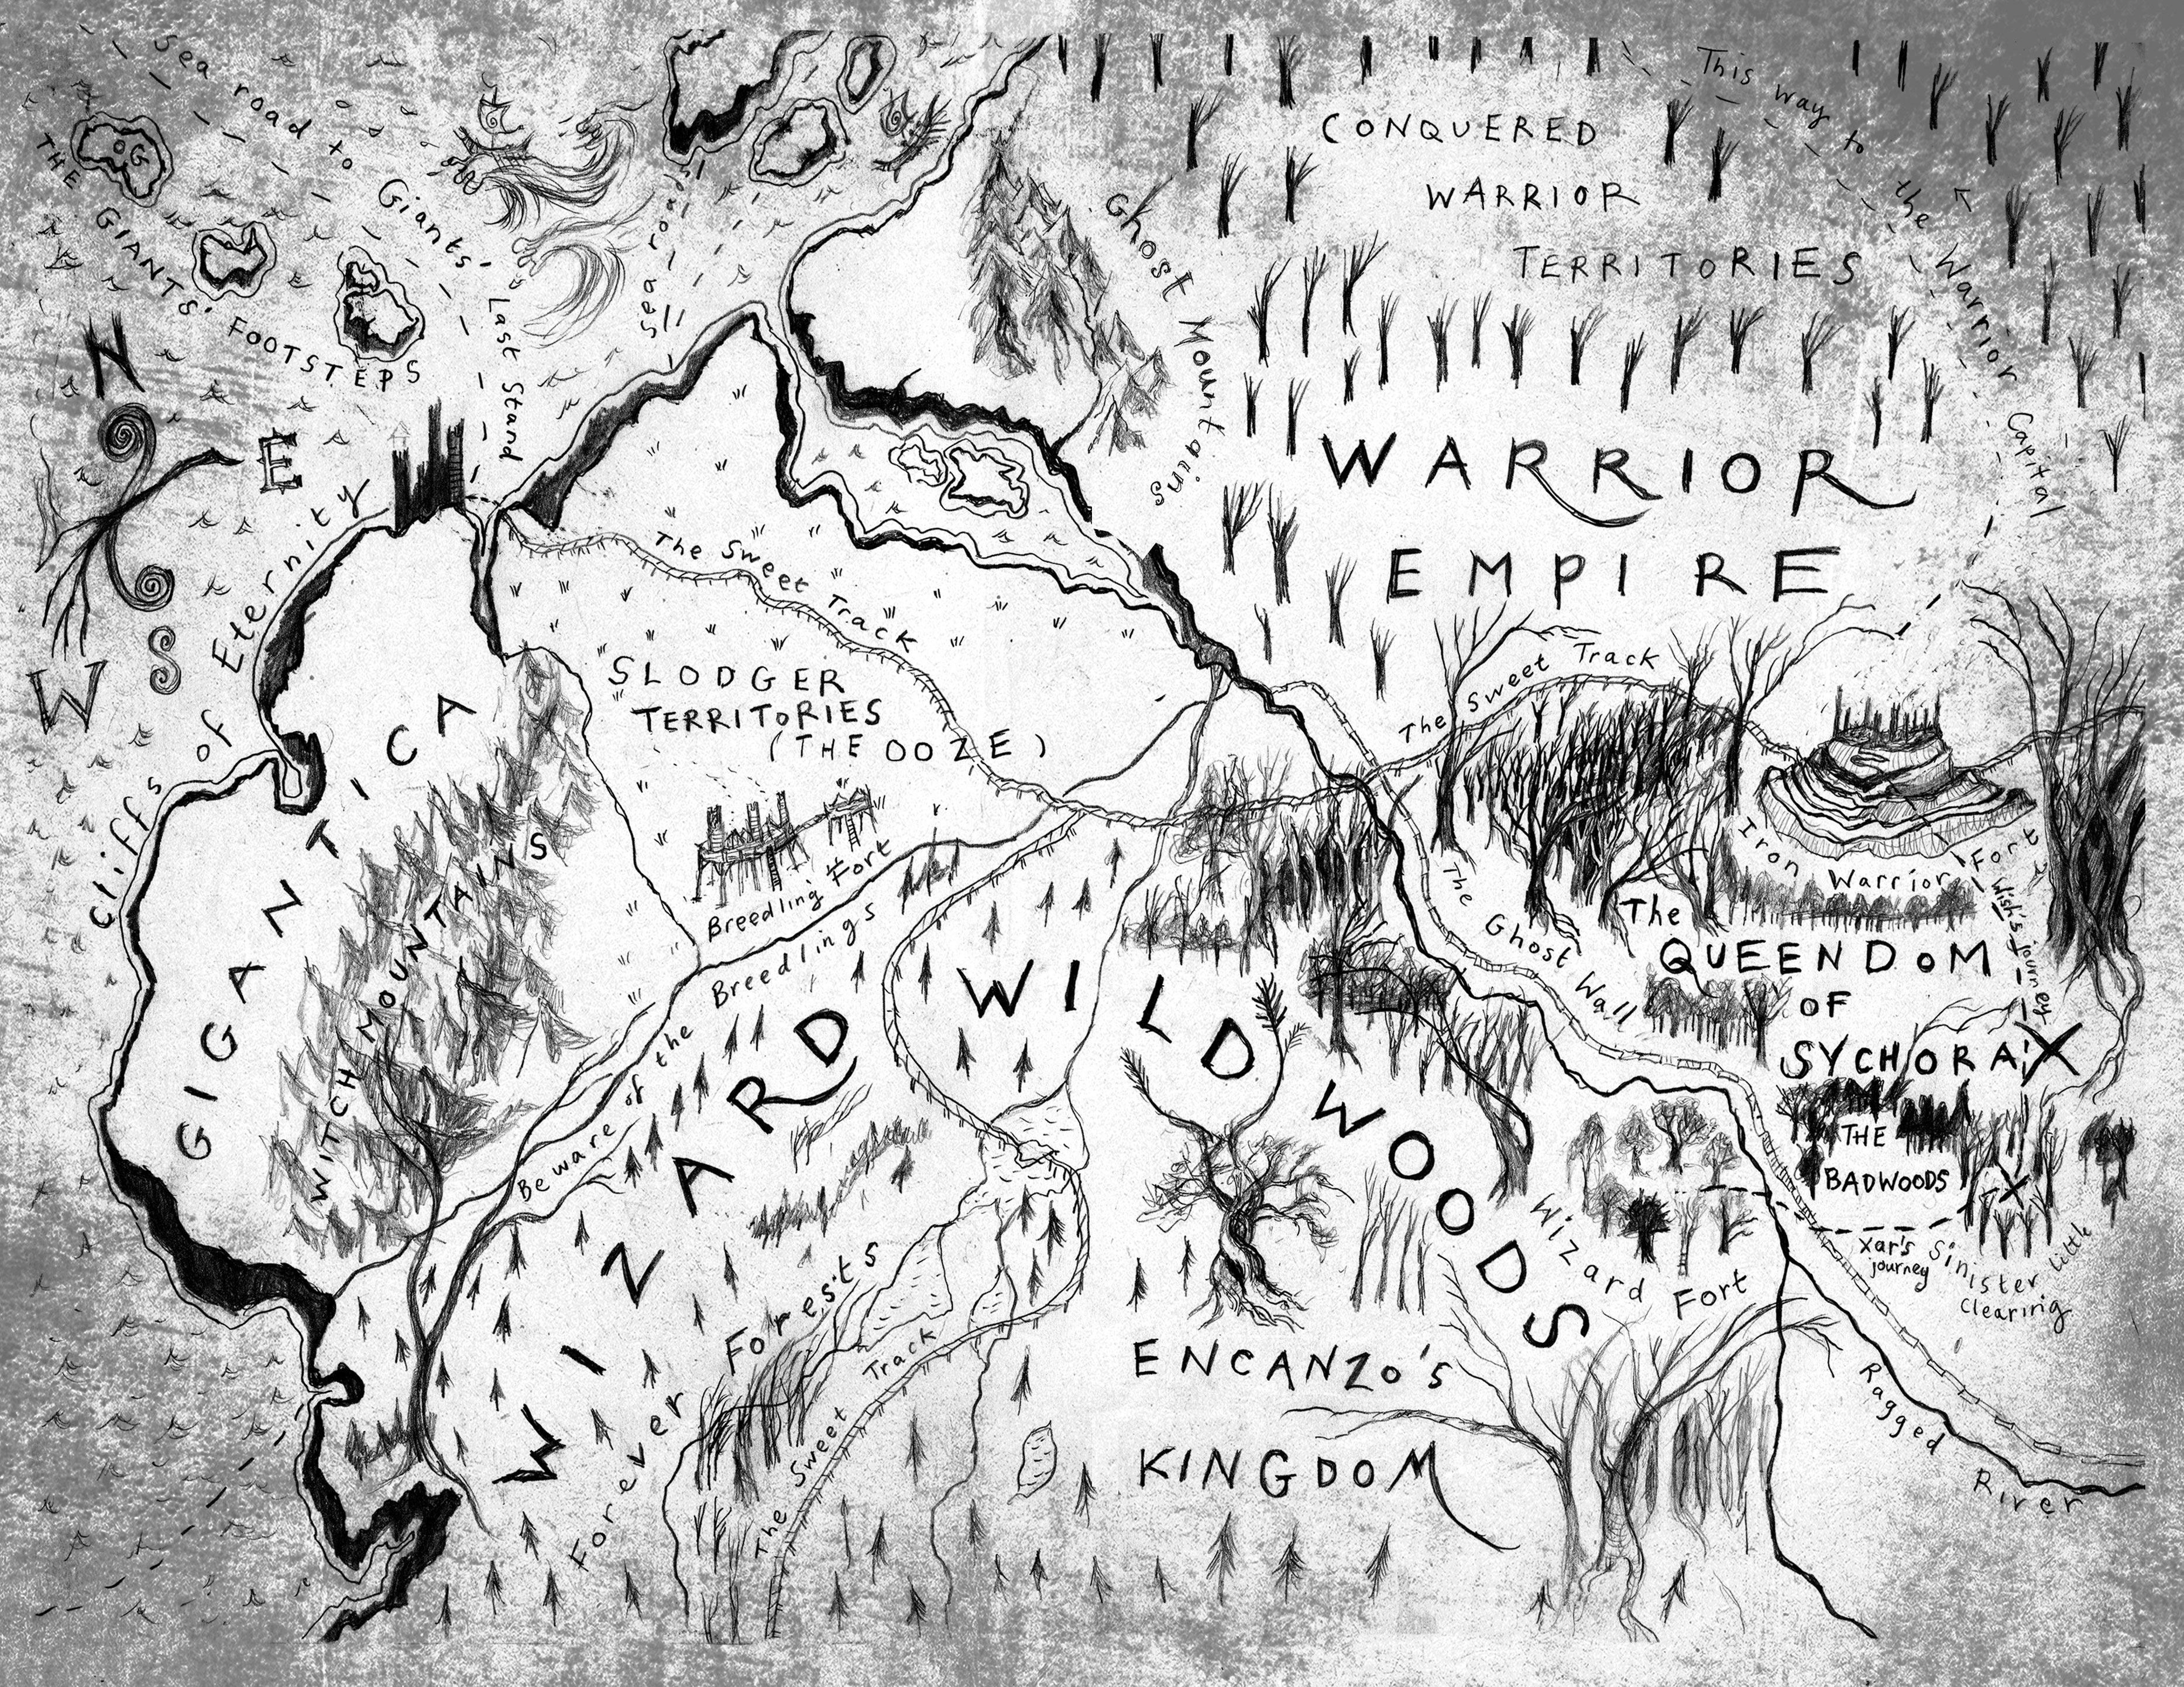 Sea road to Giants' Last Stand
THE GIANTS' FOOTSTEPS
OG
Sea road
This way to the Warrior Capital
CONQUERED
WARRIOR
TERRITORIES
Ghost Mountains
N
E
S
W
WARRIOR
EMPIRE
Cliffs of Eternity
The Sweet Track
SLODGER
TERRITORIES
(THE OOZE)
The Sweet Track
GIGANTICA
WITCH MOUNTAINS
Breedling Fort
Beware of the Breedlings
Iron Warrior Fort
The Ghost Wall
The
QUEENDOM
OF
SYCHORAX
Wish's journey
WIZARD WILDWOODS
THE
BADWOODS
X
Wizard Fort
Xar's
journey
Sinister little
clearing
Forever Forests
The Sweet Track
ENCANZO'S
KINGDOM
Ragged River